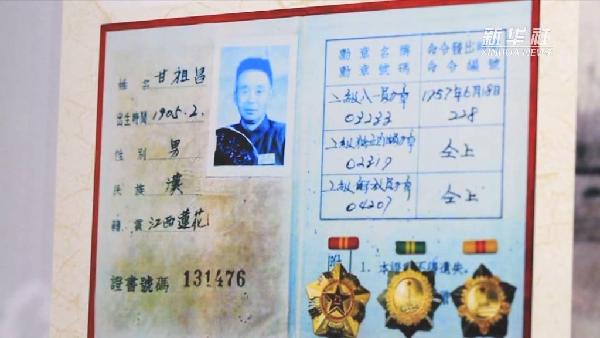 新华社
XINHUA NEWS
姓名 甘祖昌
出生時間 1905.2.
性別 男
民族 漢
籍貫 江西蓮花
證書號碼 131476
勳章名稱
勳章號碼
命令發出
命令編號
二級八一勳章
03233
1957年6月18日
228
二級独立自由勳章
02319
仝上
二級解放勳章
04207
仝上
1. 本證 不得遺失。